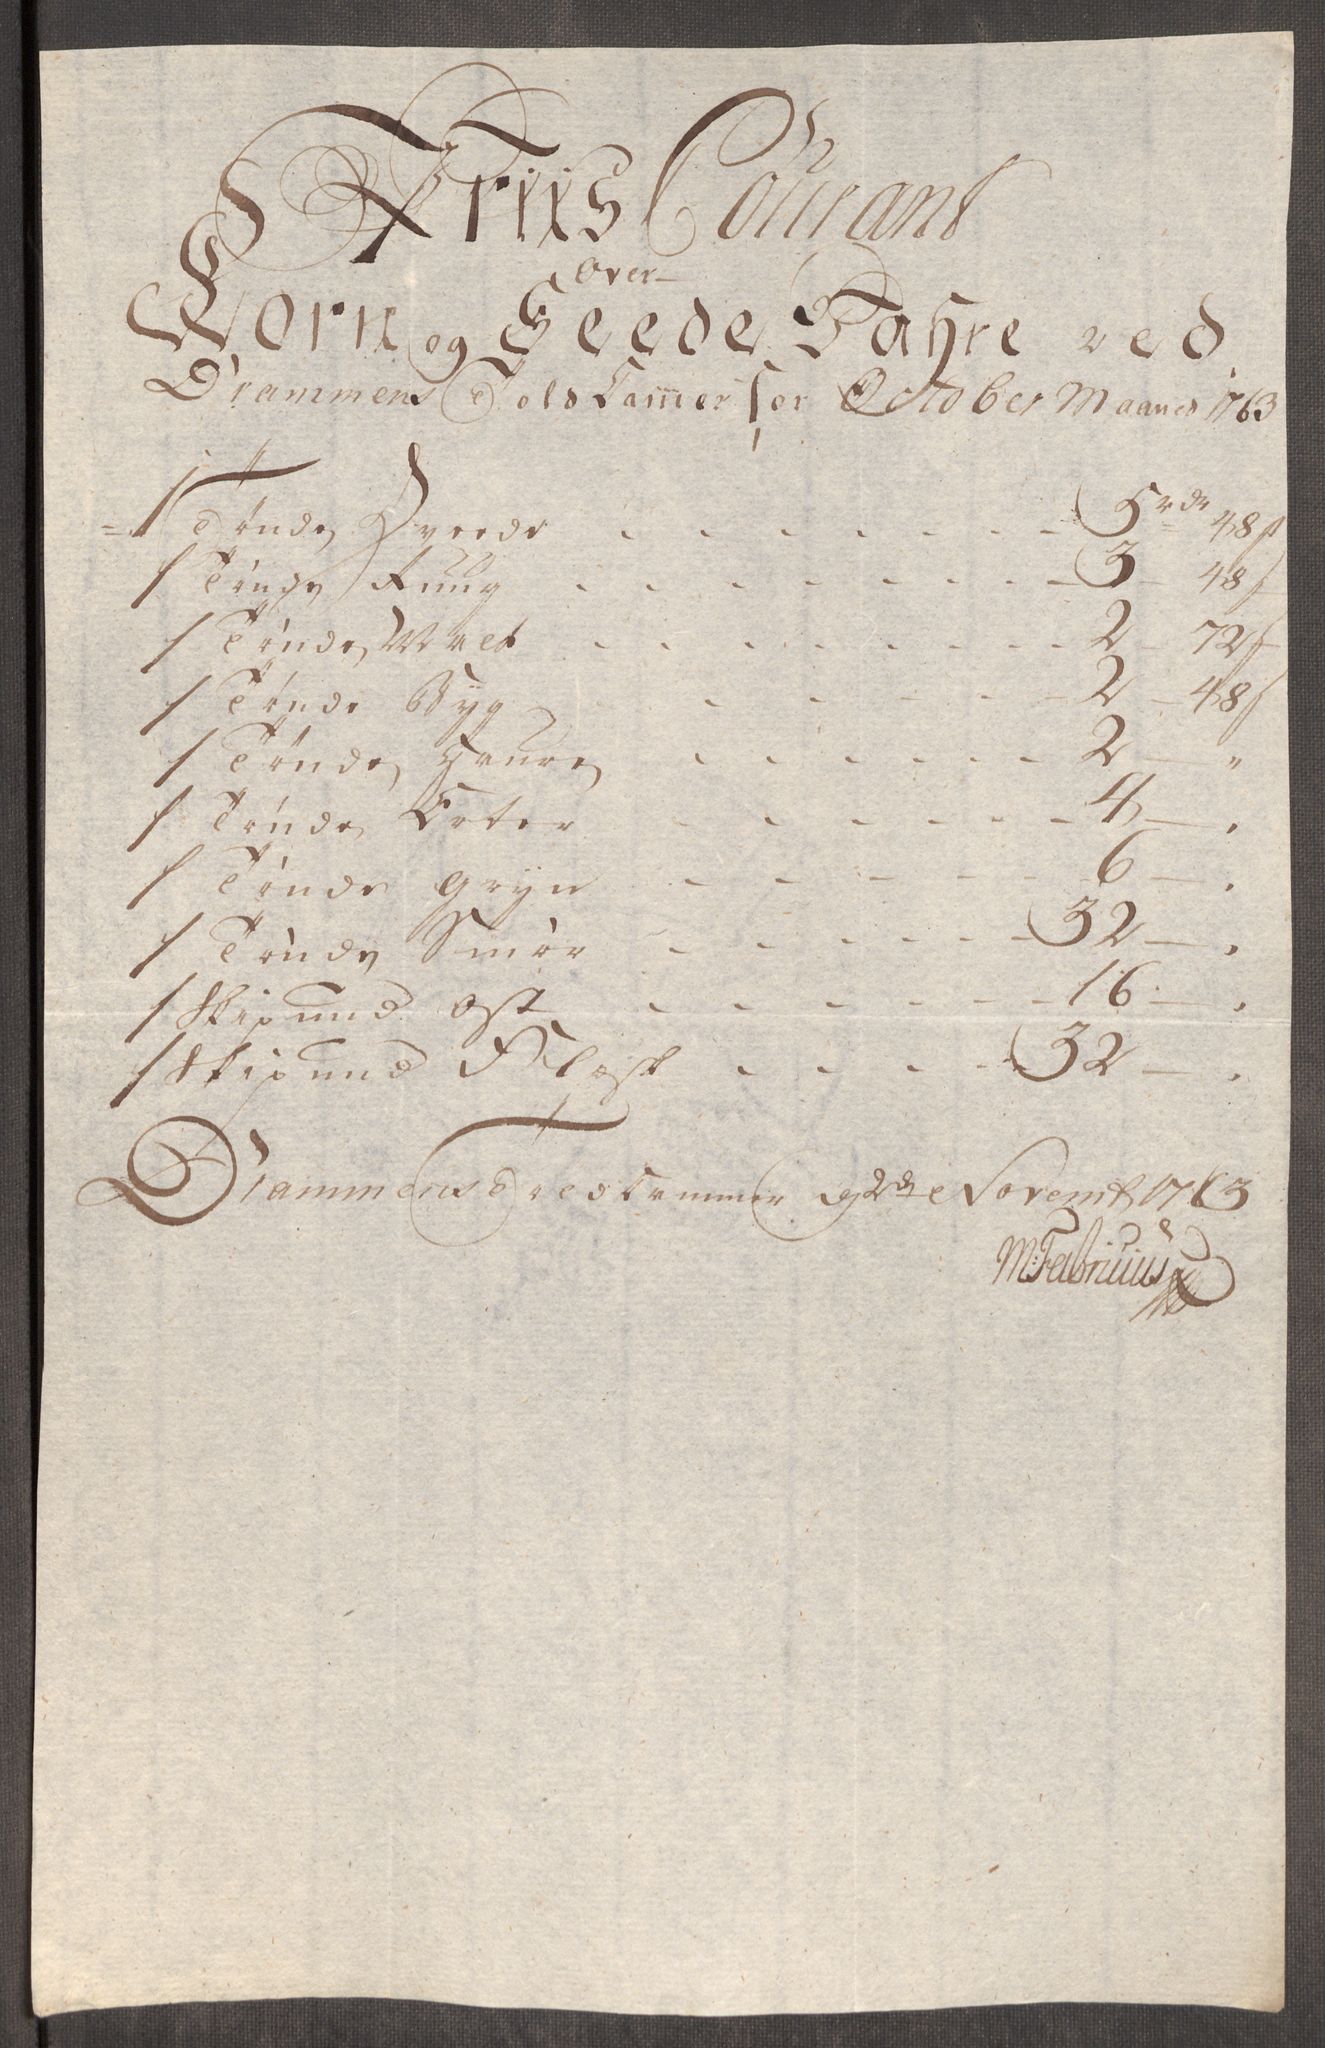 Priis Courant
over
Korn og Feede Vahre ved
Drammens Told Cam̅er for October Maaned 1763
1 Tønde Hvede - - - - - - - 5 rdr 48 s
1 Tønde Rung - - - - - - - 3 - 48 s
1 Tønde Malt - - - - - - - 2 - 72 s
1 Tønde Byg - - - - - - 2 - 48 s
1 Tønde Haure - - - - - - 2 - "
1 Tønde Erter - - - - - - 4 - "
1 Tønde Gryn - - - - - - 6 - "
1 Tønde Smør - - - - - - 32 - "
1 Skipund Ost - - - - - - 16 - "
1 Skipund Flesk - - - - 32 - "
Drammens Told Cammer d 2de Novemb 1763
M: Fabritius